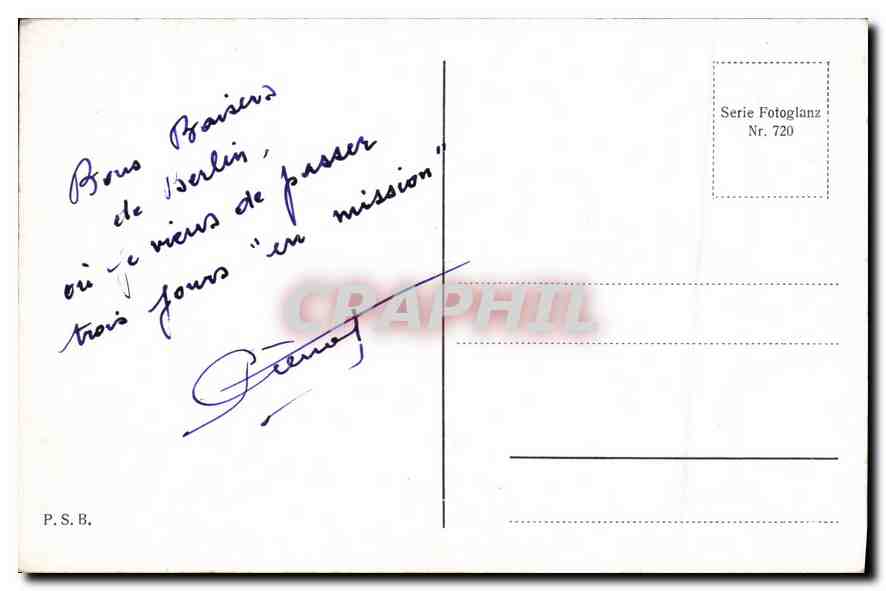 Bons Baisers
de Berlin,
où je viens de passer
trois jours "en mission"
Serie Fotoglanz
Nr. 720
CRAPHIL
P. S. B.